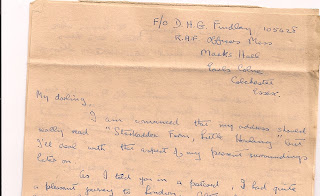 F/O D.H.G. Findlay 105528
R.A.F. Officers Mess
Marks Hall
Earls Colne
Colchester
Essex.
My darling,
I am convinced that my address should
really read " Farm, Little " but
I'll deal with the aspect of my present surroundings
later on.
As I told you in a postcard I had quite
a pleasant journey to London